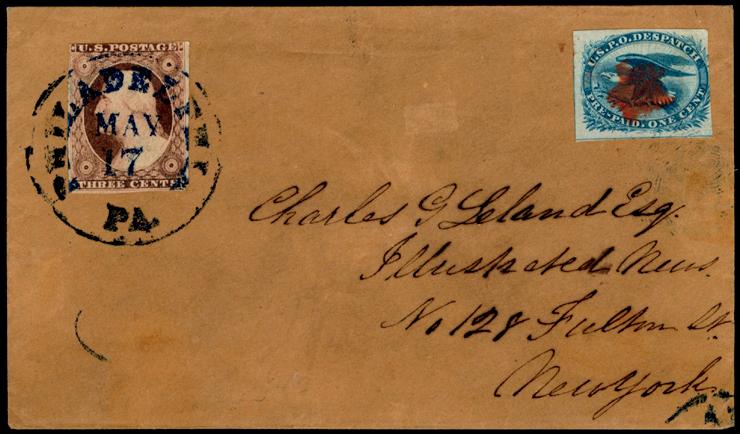 U.S. POSTAGE
THREE CENTS
PHILADELPHIA
MAY
17
PA.
U.S.P.O. DESPATCH
PRE-PAID. ONE CENT
Charles G Leland Esq.
Illustrated News.
No 128 Fulton St
New York